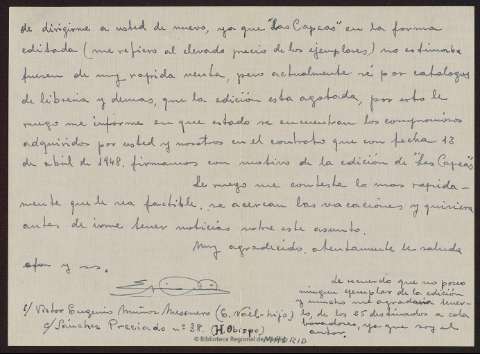 de dirigirme a usted de nuevo, ya que "Las Capeas" en la forma
editada (me refiero al elevado precio de los ejemplares) no estimaba
fuesen de muy rapida venta, pero actualmente sé por catalogos
de libreria y demas, que la edición esta agotada, por esto le
ruego me informe en que estado se encuentran los compromisos
adquiridos por usted y nosotros en el contrato que con fecha 13
de abril de 1948, firmamos con motivo de la edición de "Las Capeas"
Le ruego me conteste lo mas rapida-
mente que le sea factible, se acercan las vacaciones y quisiera
antes de irme tener noticias sobre este asunto.
Muy agradecido, atentamente le saluda
afmo y ss.
s/ Victor Eugenio Muñoz Mesonero (E. Noel-hijo)
c/ Sánchez Preciado nº 38. (H. Obispo)
MADRID
de recuerdo que no poseo
ningun ejemplar de la edición
y mucho me agradaria tener-
lo, de los 25 destinados a cola-
boradores, ya que soy el
autor.
© Biblioteca Regional de